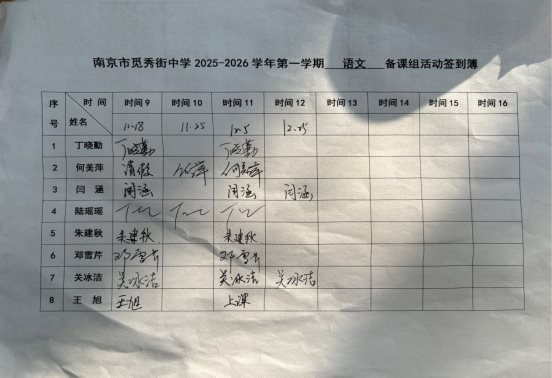 南京市觅秀街中学 2025-2026 学年第一学期 语文 备课组活动签到簿
序号 时间 姓名 时间 9 时间 10 时间 11 时间 12 时间 13 时间 14 时间 15 时间 16
11.18 11.25 12.5 12.25
1 丁晓勤 丁晓勤 丁晓勤
2 何美萍 请假 何美萍
3 闫涵 闫涵 闫涵 闫涵
4 陆瑶瑶
5 朱建秋 朱建秋 朱建秋
6 邓雪芹 邓雪芹 邓雪芹
7 关冰洁 关冰洁 关冰洁 关冰洁
8 王旭 王旭 上课